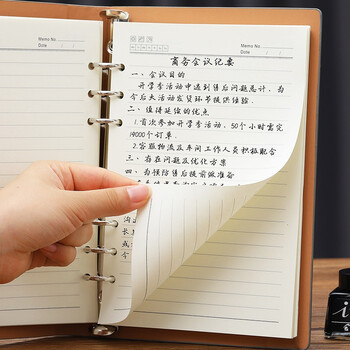 Memo No.
Date / /
Memo No.
Date / /
商务会议纪要
一、会议目的
开学季活动中遇到售后问题总计，为
今后大活动发货环节提供经验.
二、值得延续的优点
1.首次参加开学季活动，50个小时需完
19000个订单.
2.客服物流及车间工作人员积极配合
三、存在问题及优化方案
四、为预防售后提前做准备
沟
长
或